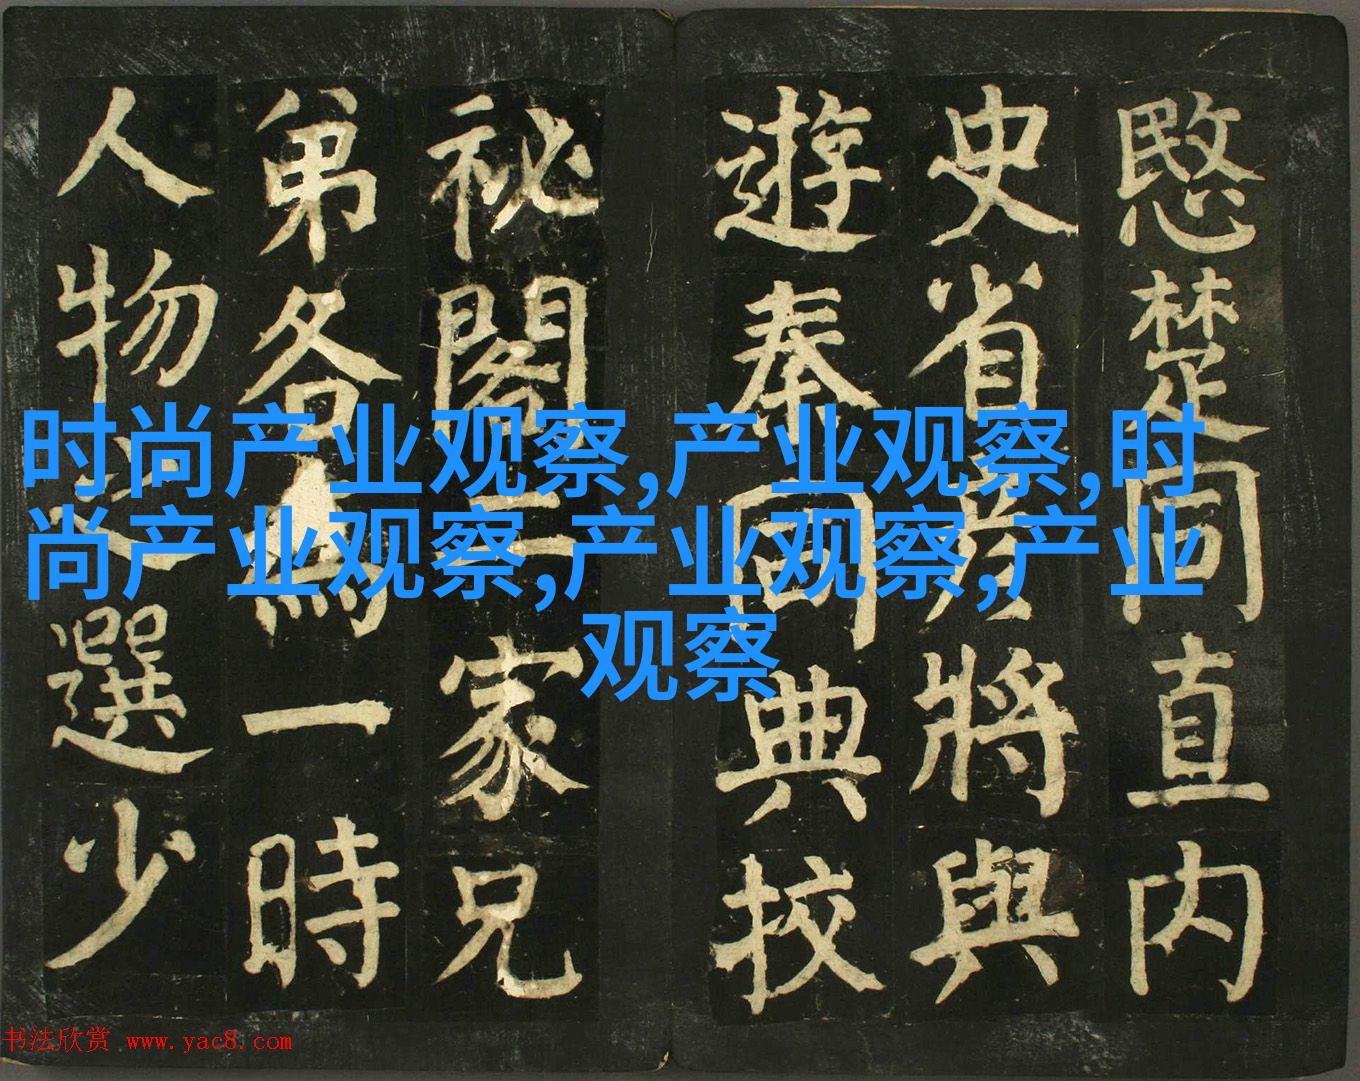 愍楚同直内
史省彦將與
遊秦同典校
祕閣二家兄
弟各為一時
人物之選少
时尚产业观察,产业观察,时
尚产业观察,产业观察,产业
观察
书法欣赏 www.yac8.com